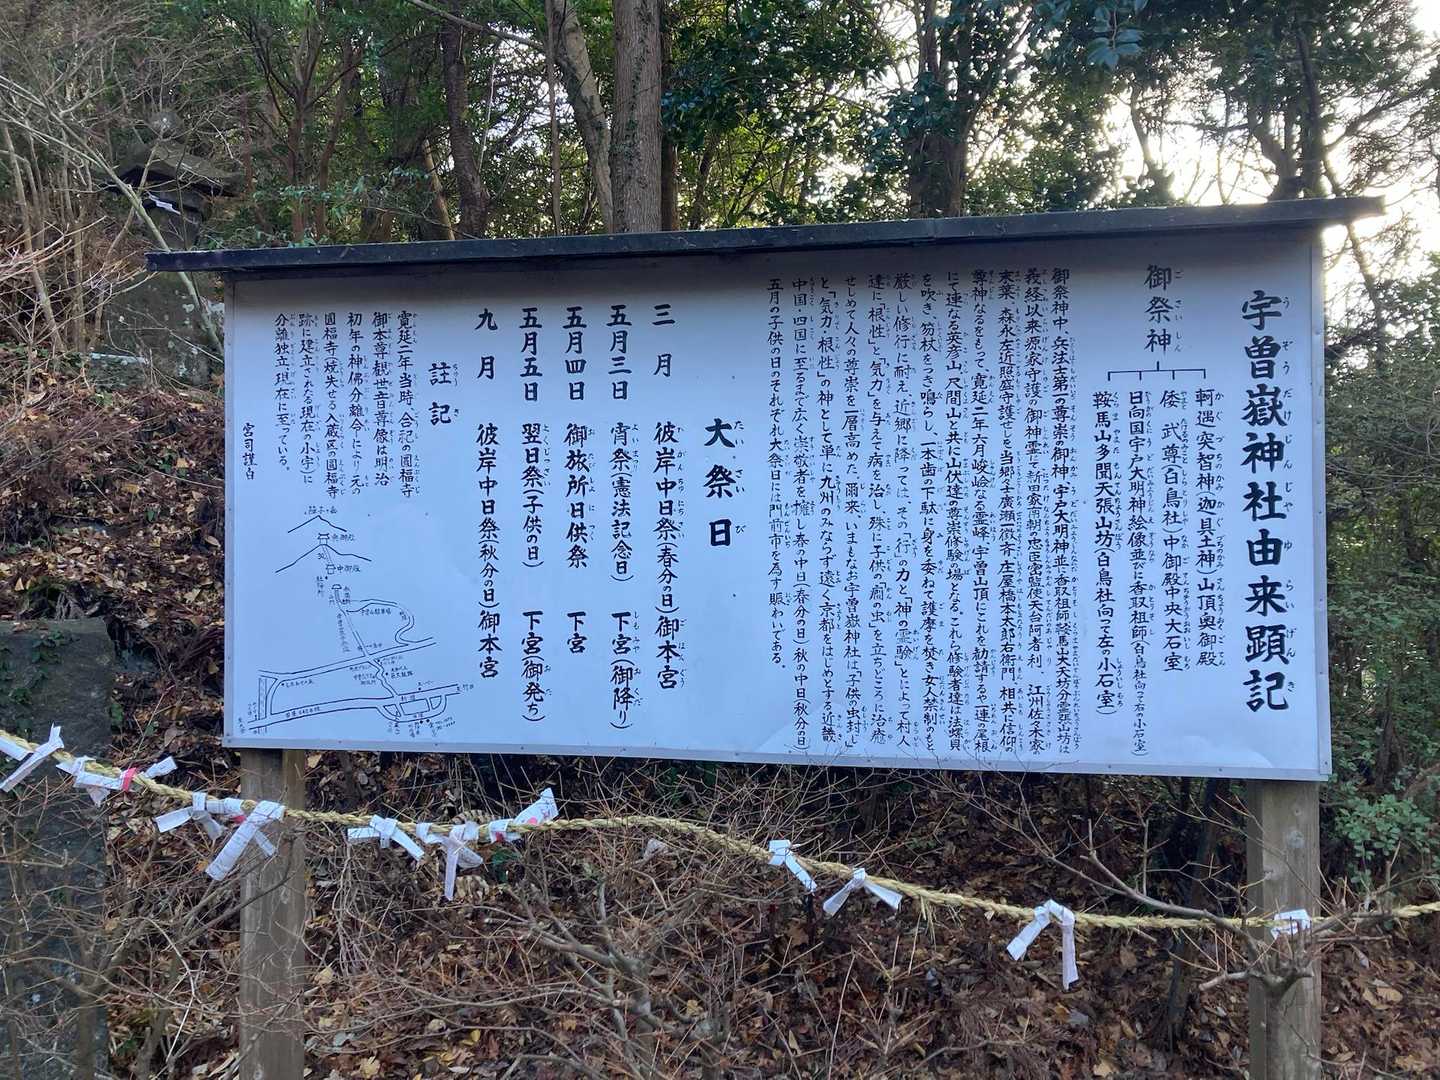 宇曽嶽神社由来顕記
御祭神
軻遇突智神(迦具土神)山頂奥御殿
倭武尊(白鳥社)中御殿中央大石室
日向国宇戸大明神絵像並びに香取祖師(白鳥社向って右の小石室)
鞍馬山多聞天張山坊(白鳥社向って左の小石室)
御祭神中、兵法士第一の尊崇の御神、宇戸大明神並、香取祖師、鞍馬山大天狗分霊張山坊は
義経以来源家守護の御神霊で新田家南朝の忠臣
末葉、森永左近照盛守護せしを当郷士廣瀬徴斉、庄屋橋本太郎右衛門、相共に信仰
尊神なるをもって、寛延二年六月峻嶮なる霊峰、宇曽山頂にこれを勧請する。一連の尾根
にて連なる英彦山、尺間山と共に山伏達の尊崇修験の場となる。これら修験者達は法螺貝
を吹き、笏杖をつき鳴らし、一本歯の下駄に身を委ねて護摩を焚き女人禁制のもと、
厳しい修行に耐え、近郷に降っては、その「行」の力と「神の霊験」とによって村人
達に「根性」と「気力」を与えて病を治し、殊に子供の「癇の虫」を立ちどころに治癒
せしめて人々の尊崇を一層高め、爾来、いまもなお宇曽嶽神社は「子供の虫封じ」
と「気力・根性」の神として単に九州のみならず遠く京都をはじめとする近畿
中国・四国に至るまで広く崇敬者を擁し春の中日(春分の日)秋の中日(秋分の日)
五月の子供の日のそれぞれ大祭日には門前市を為す賑わいである。
大祭日
三月 彼岸中日祭(春分の日)御本宮
五月三日 宵祭(憲法記念日) 下宮(御降り)
五月四日 御旅所日供祭 下宮
五月五日 翌日祭(子供の日) 下宮(御発ち)
九月 彼岸中日祭(秋分の日)御本宮
註記
寛延二年当時、合祀の圓福寺
御本尊観世音尊像は明治
初年の神佛分離令により元の
圓福寺(焼失せる入蔵区の圓福寺
跡に建立てれなる現在の小宇)に
分離独立、現在に至っている。
宮司謹白